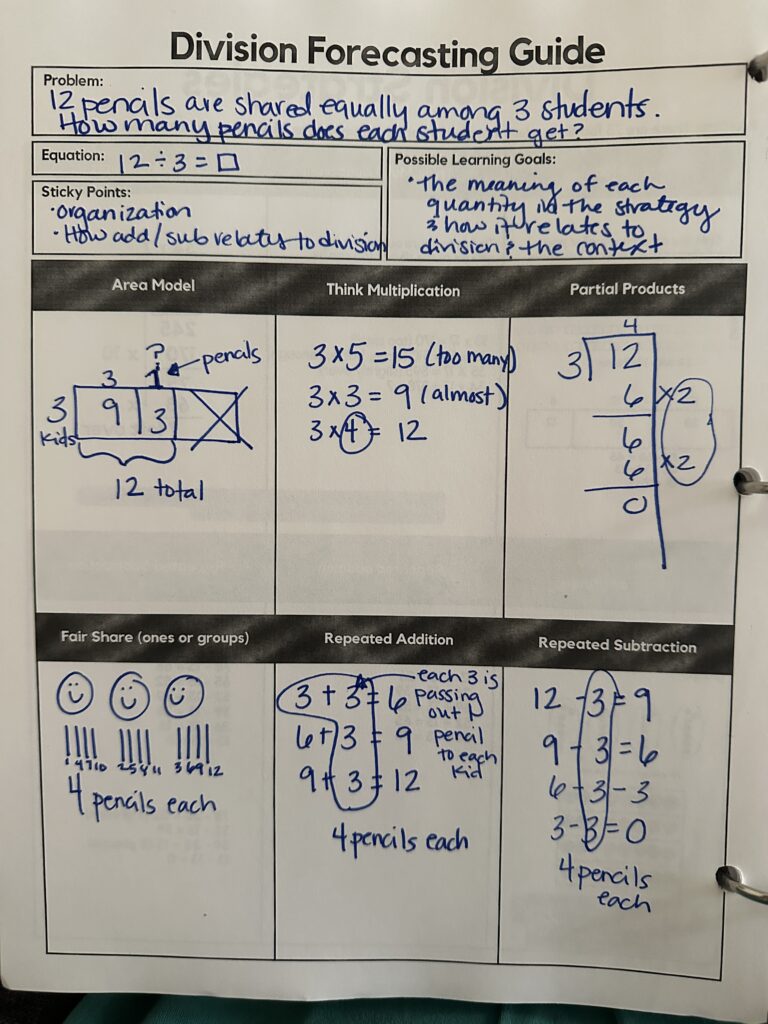 Division Forecasting Guide
Problem:
12 pencils are shared equally among 3 students.
How many pencils does each student get?
Equation: 12 ÷ 3 = □
Sticky Points:
• organization
• How add/sub relates to division
Possible Learning Goals:
• the meaning of each
quantity in the strategy
& how it relates to
division & the context
Area Model
?
3 1 ← pencils
3 9 3
kids
12 total
Think Multiplication
3 × 5 = 15 (too many)
3 × 3 = 9 (almost)
3 × 4 = 12
Partial Products
4
3 12
6 ×2
6
6 ×2
0
Fair Share (ones or groups)
1 4 7 10 2 5 11 3 6 9 12
4 pencils each
Repeated Addition
3 + 3 = 6
6 + 3 = 9
9 + 3 = 12
each 3 is
passing
out
pencil
to each
kid
4 pencils each
Repeated Subtraction
12 - 3 = 9
9 - 3 = 6
6 - 3 - 3
3 - 3 = 0
4 pencils
each